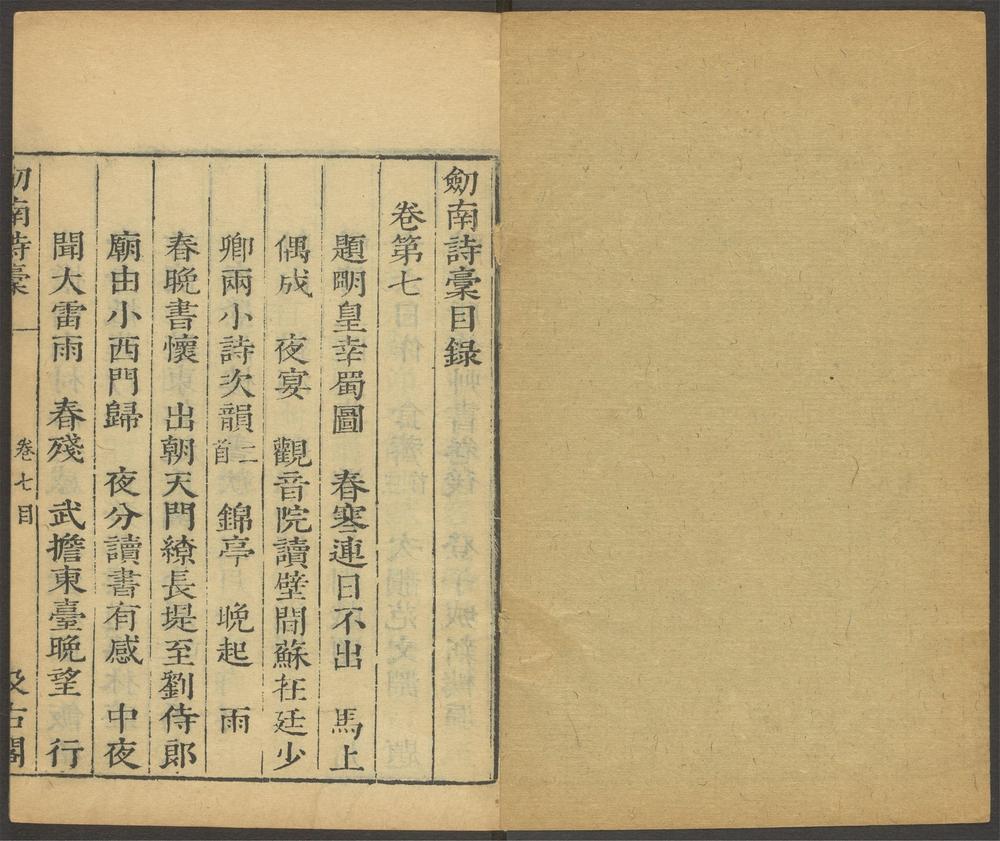 劒南詩稾目錄
卷第七
題明皇幸蜀圖　春寒連日不出　馬上
偶成　夜宴　觀音院讀壁間蘇在廷少
卿兩小詩次韻二首　錦亭　晚起　雨
春晚書懷　出朝天門繚長堤至劉侍郎
廟由小西門歸　夜分讀書有感　中夜
聞大雷雨　春殘　武擔東臺晚望　行
劒南詩稾　卷七目　一　汲古閣